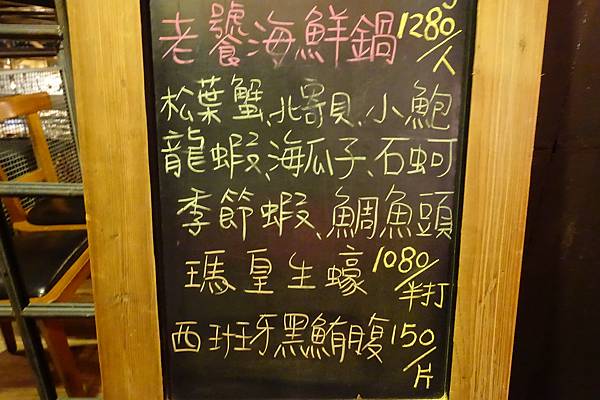 老饕海鮮鍋1280/人
松葉蟹、北寄貝、小鮑
龍蝦、海瓜子、石蚵
季節蝦、鯛魚頭
瑪皇生蠔1080/半打
西班牙黑鮪腹150/片